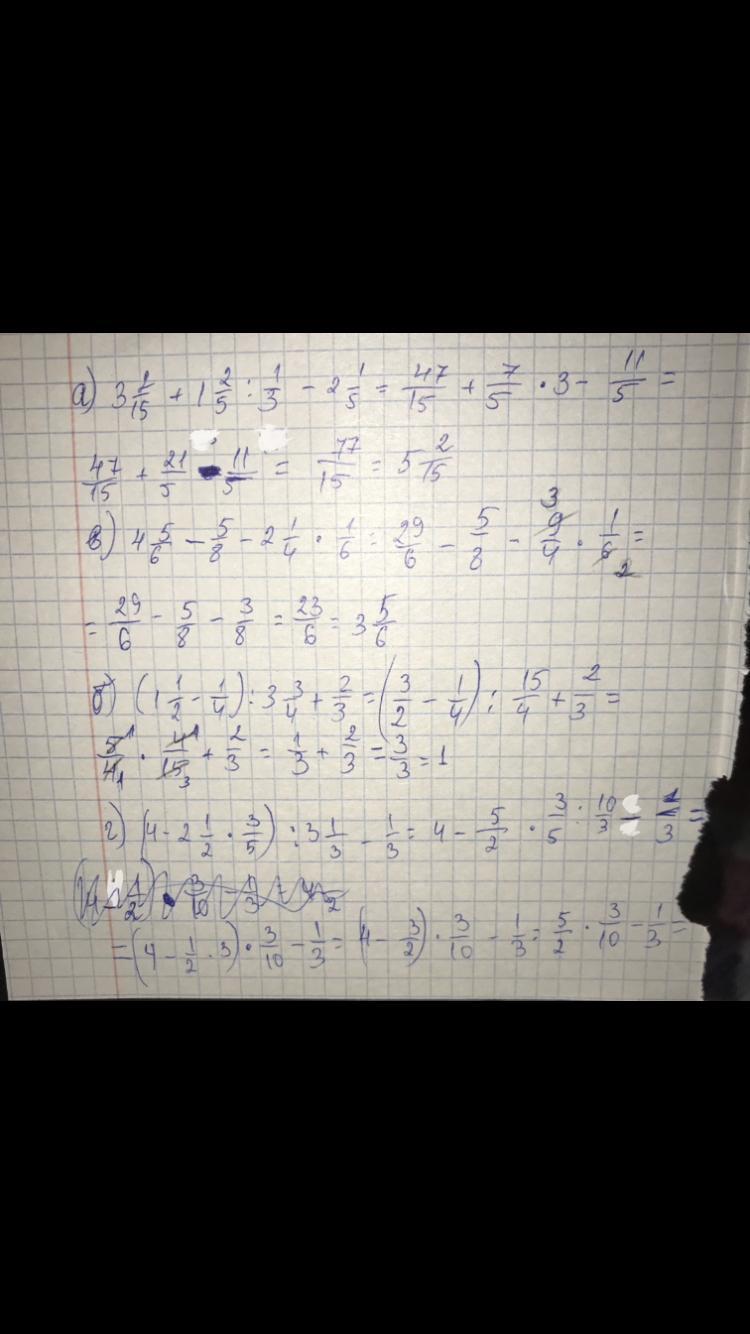 а) 3 2/15 + 1 2/5 : 1/3 - 2 1/5 = 47/15 + 7/5 · 3 - 11/5 =
47/15 + 21/5 - 11/5 = 77/15 = 5 2/15
в) 4 5/6 - 5/8 - 2 1/4 · 1/6 = 29/6 - 5/8 - 9/4 · 1/6 = 3 2
= 29/6 - 5/8 - 3/8 = 23/6 = 3 5/6
б) (1 1/2 - 1/4) : 3 3/4 + 2/3 = (3/2 - 1/4) : 15/4 + 2/3 =
5/4 · 4/15 + 2/3 = 1/3 + 2/3 = 3/3 = 1
г) (4 - 2 1/2 · 3/5) : 3 1/3 - 1/3 = 4 - 5/2 · 3/5 : 10/3 - 1/3 =
= (4 - 1/2 · 3) · 3/10 - 1/3 = (4 - 3/2) · 3/10 - 1/3 = 5/2 · 3/10 - 1/3 =